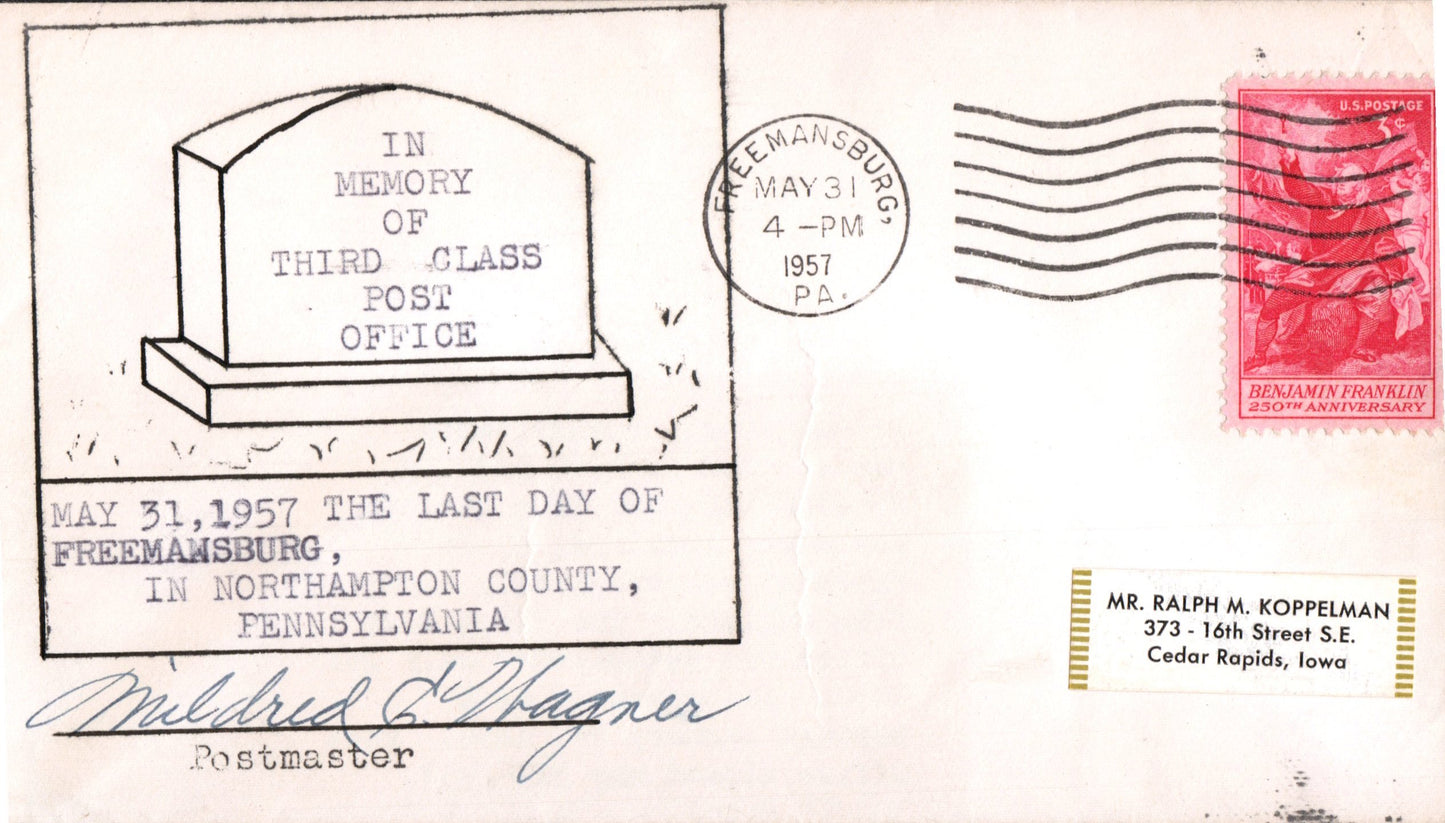 IN
MEMORY
OF
THIRD CLASS
POST
OFFICE
MAY 31, 1957 THE LAST DAY OF
FREEMANSBURG,
IN NORTHAMPTON COUNTY,
PENNSYLVANIA
Mildred E. Wagner
Postmaster
FREEMANSBURG,
MAY 31
4 -PM
1957
PA.
U.S. POSTAGE
3¢
BENJAMIN FRANKLIN
250TH ANNIVERSARY
MR. RALPH M. KOPPELMAN
373 - 16th Street S.E.
Cedar Rapids, Iowa